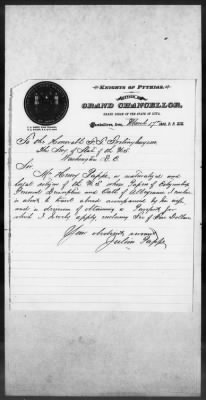 KNIGHTS OF PYTHIAS.
OFFICE OF
GRAND CHANCELLOR,
GRAND LODGE OF THE STATE OF IOWA.
Iowa, March 17th
To the Honorable F. T. Frelinghuysen
the Secy of State of the U.S.
Washington D.C.
Sir
Mr. Henry Pappe, a naturalized and
legal citizen of the U.S. whose Papers of Citizenship
Personal Description and Oath of Allegiance I enclose
is about to travel abroad accompanied by his wife
and is desirous of obtaining a Passport for
which I hereby apply enclosing Fee of Five Dollars
Your obedient servant
Julius Pappe